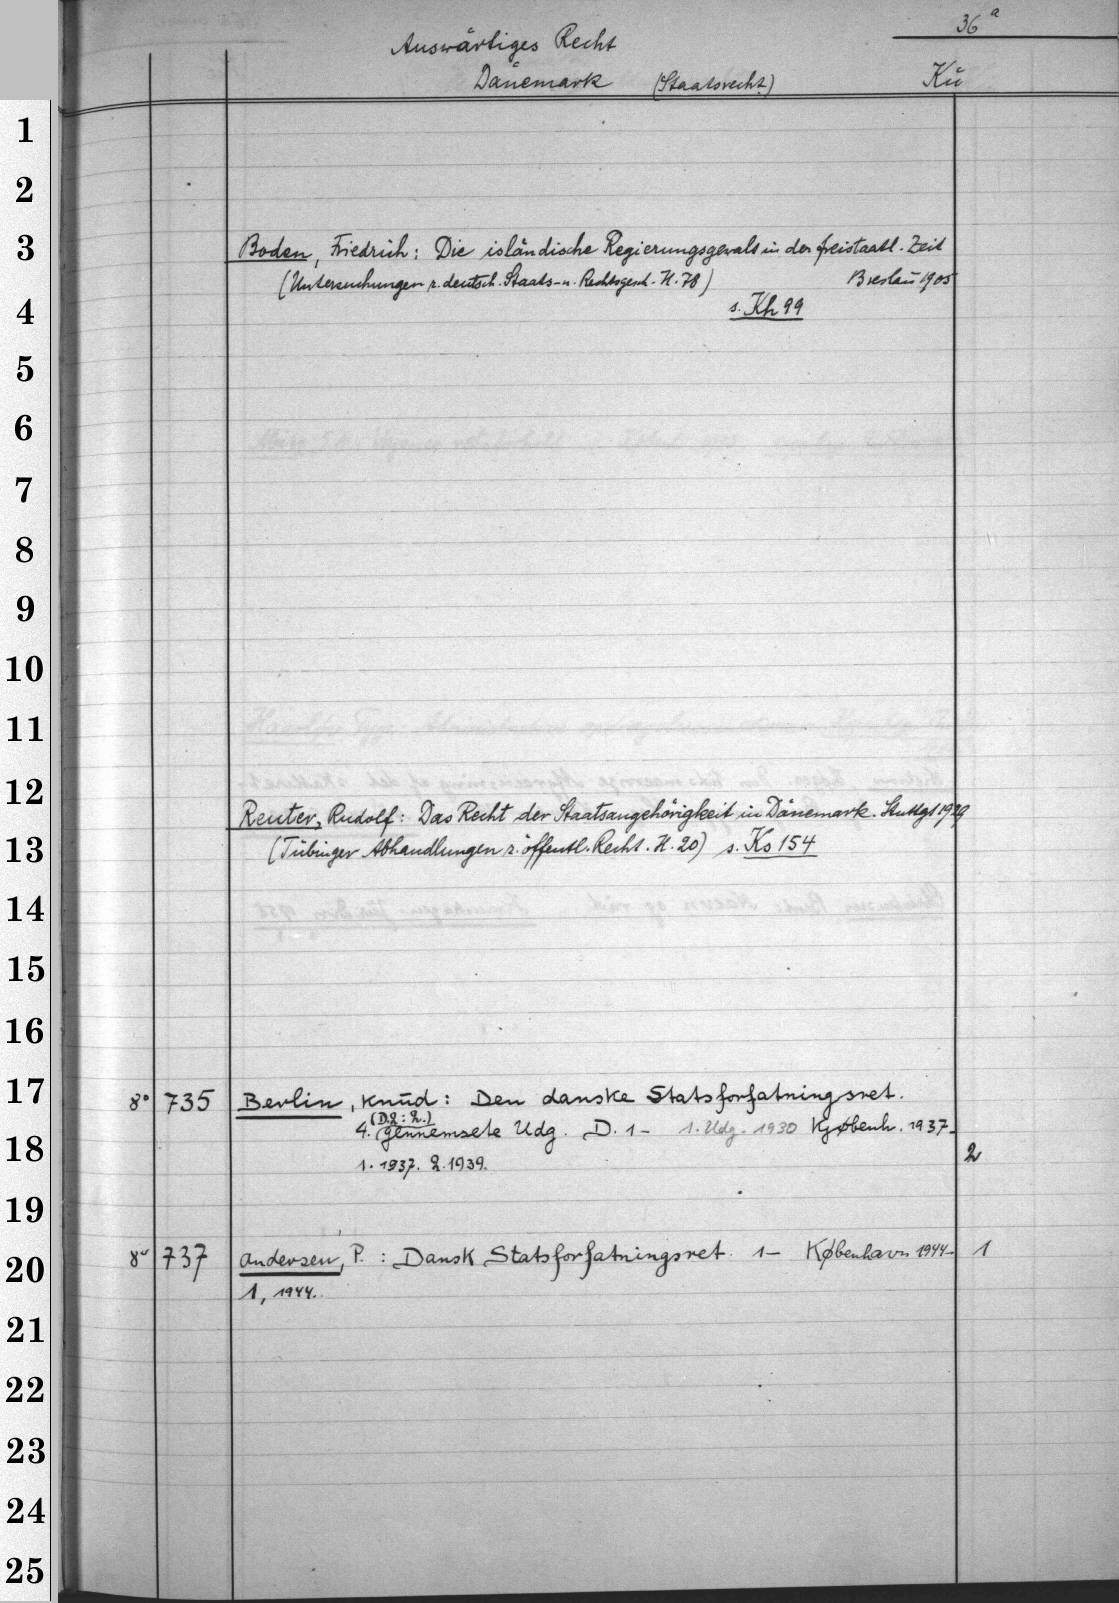 36 a
Auswärtiges Recht
Dänemark (Staatsrecht) Kü
1
2
3 Boden, Friedrich: Die isländische Regierungsgewalt in der freistaatl. Zeit
(Untersuchungen z. deutsch. Staats- u. Rechtsgesch. H. 78) Breslau 1905
4 s. Kh 99
5
6
7
8
9
10
11
12 Reuter, Rudolf: Das Recht der Staatsangehörigkeit in Dänemark. Stuttgt 1929
13 (Tübinger Abhandlungen z. öffentl. Recht. H. 20) s. Ks 154
14
15
16
17 8° 735 Berlin, Knud: Den danske Statsforfatningsret.
(D.2: 2.)
4. gennemsete Udg. D. 1- 1. Udg. 1930 Kjøbenh. 1937-
18 1. 1937. 2. 1939. 2
19
20 8° 737 Andersen, P.: Dansk Statsforfatningsret. 1- København 1944- 1
1, 1944.
21
22
23
24
25